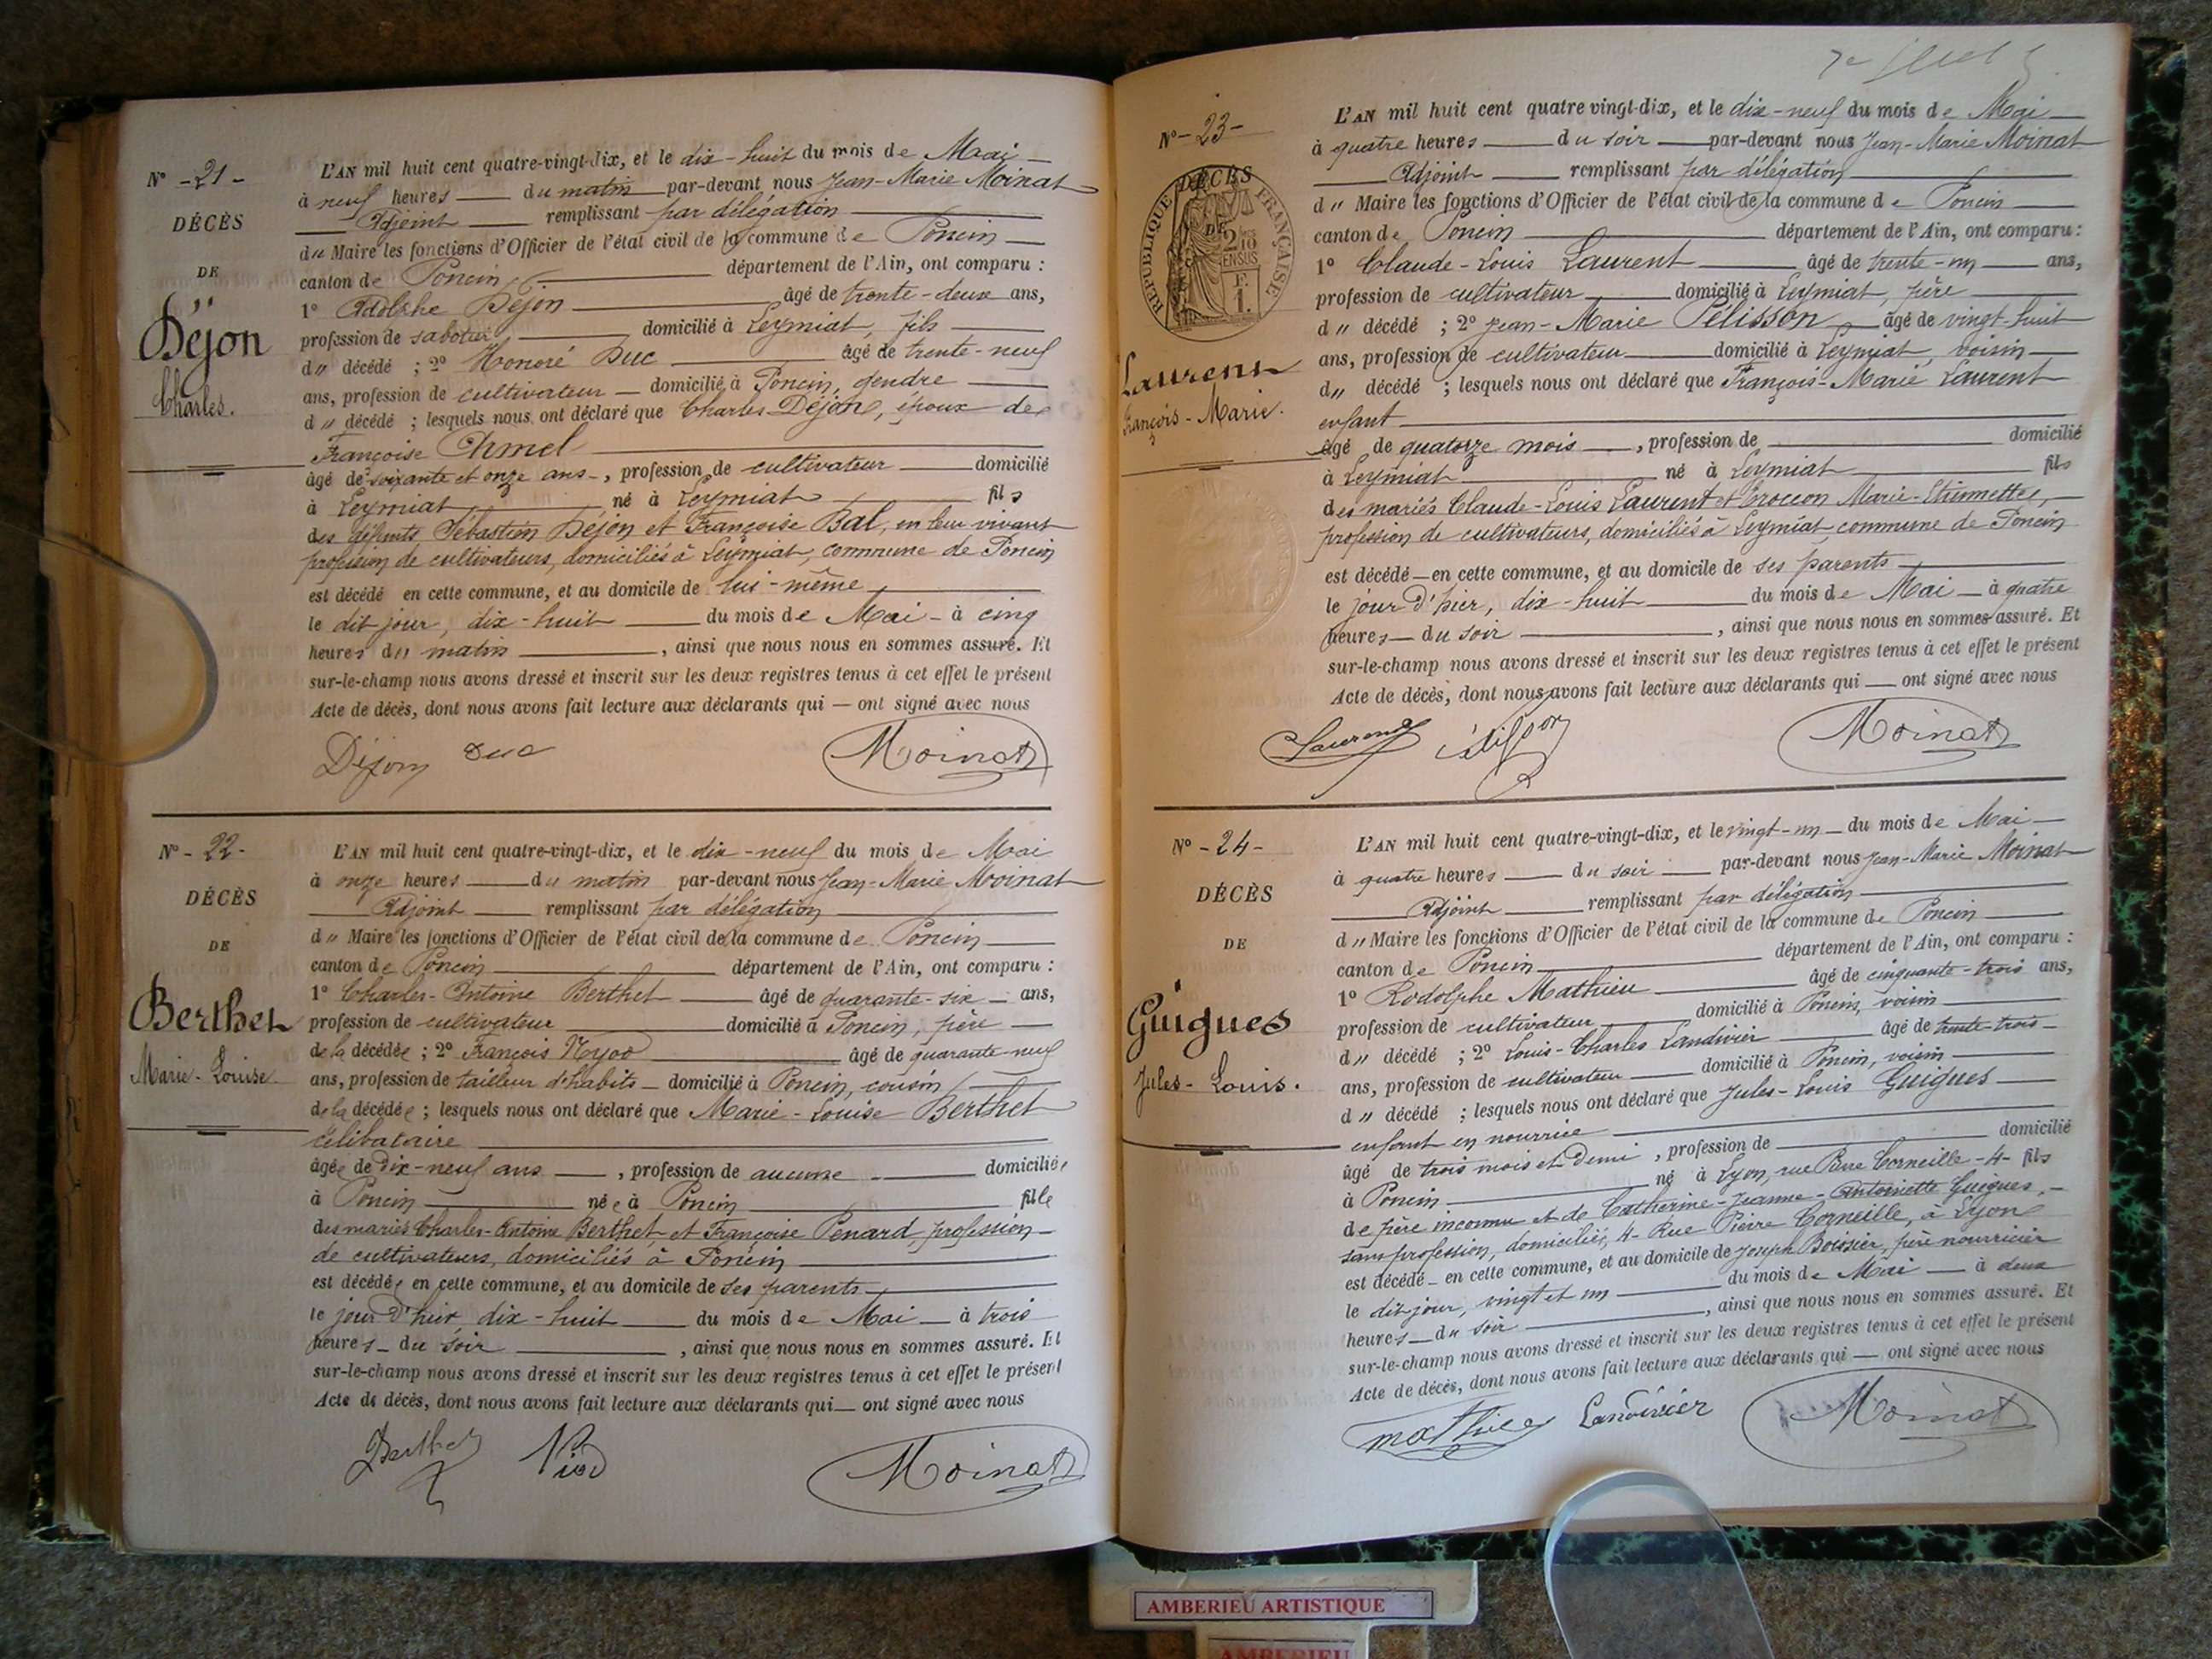 N° - 21 -
DÉCÈS
DE
Déjon
Charles.
L'AN mil huit cent quatre-vingt-dix, et le dix-huit du mois de Mai
à neuf heures du matin par-devant nous Jean-Marie Moinat
Adjoint remplissant par délégation
du Maire les fonctions d'Officier de l'état civil de la commune de Poncin
canton de Poncin département de l'Ain, ont comparu :
1° Adolphe Déjon âgé de trente-deux ans,
profession de sabotier domicilié à Leymiat, fils
d" décédé ; 2° Honoré Duc âgé de trente-neuf
ans, profession de cultivateur domicilié à Poncin, gendre
d" décédé ; lesquels nous ont déclaré que Charles Déjon, époux de
Françoise
âgé de soixante et onze ans, profession de cultivateur domicilié
à Leymiat né à Leymiat fils
des défunts Sébastien Déjon et Françoise Bal, en leur vivant
profession de cultivateurs, domiciliés à Leymiat, commune de Poncin
est décédé en cette commune, et au domicile de lui-même
le dit jour, dix-huit du mois de Mai à cinq
heures du matin, ainsi que nous nous en sommes assuré. Et
sur-le-champ nous avons dressé et inscrit sur les deux registres tenus à cet effet le présent
Acte de décès, dont nous avons fait lecture aux déclarants qui — ont signé avec nous
Déjon Duc Moinat
N° - 22 -
DÉCÈS
DE
Berthet
Marie-Louise
L'AN mil huit cent quatre-vingt-dix, et le dix-neuf du mois de Mai
à onze heures du matin par-devant nous Jean-Marie Moinat
Adjoint remplissant par délégation
d" Maire les fonctions d'Officier de l'état civil de la commune de Poncin
canton de Poncin département de l'Ain, ont comparu :
1° Charles-Antoine Berthet âgé de quarante-six ans,
profession de cultivateur domicilié à Poncin, père
de la décédée ; 2° François âgé de quarante-neuf
ans, profession de tailleur d'habits domicilié à Poncin, cousin
de la décédée ; lesquels nous ont déclaré que Marie-Louise Berthet
célibataire
âgée de dix-neuf ans, profession de aucune domiciliée
à Poncin née à Poncin fille
des mariés Charles-Antoine Berthet et Françoise Penard, profession
de cultivateurs, domiciliés à Poncin
est décédée en cette commune, et au domicile de ses parents
le jour d'hier, dix-huit du mois de Mai à trois
heures du soir, ainsi que nous nous en sommes assuré. Et
sur-le-champ nous avons dressé et inscrit sur les deux registres tenus à cet effet le présent
Acte de décès, dont nous avons fait lecture aux déclarants qui — ont signé avec nous
Berthet Moinat
N° - 23 -
RÉPUBLIQUE FRANÇAISE
DÉCÈS
DE
Laurent
François-Marie.
L'AN mil huit cent quatre vingt-dix, et le dix-neuf du mois de Mai
à quatre heures du soir par-devant nous Jean-Marie Moinat
Adjoint remplissant par délégation
d" Maire les fonctions d'Officier de l'état civil de la commune de Poncin
canton de Poncin département de l'Ain, ont comparu :
1° Claude-Louis Laurent âgé de trente-un ans,
profession de cultivateur domicilié à Leymiat, père
d" décédé ; 2° Jean-Marie Pélisson âgé de vingt-huit
ans, profession de cultivateur domicilié à Leymiat, voisin
d" décédé ; lesquels nous ont déclaré que François-Marie Laurent
enfant
âgé de quatorze mois, profession de domicilié
à Leymiat né à Leymiat fils
des mariés Claude-Louis Laurent et Marie-Etiennette,
profession de cultivateurs, domiciliés à Leymiat, commune de Poncin
est décédé en cette commune, et au domicile de ses parents
le jour d'hier, dix-huit du mois de Mai à quatre
heures du soir, ainsi que nous nous en sommes assuré. Et
sur-le-champ nous avons dressé et inscrit sur les deux registres tenus à cet effet le présent
Acte de décès, dont nous avons fait lecture aux déclarants qui — ont signé avec nous
Laurent Moinat
N° - 24 -
DÉCÈS
DE
Guigues
Jules-Louis.
L'AN mil huit cent quatre-vingt-dix, et le vingt-un du mois de Mai
à quatre heures du soir par-devant nous Jean-Marie Moinat
Adjoint remplissant par délégation
d" Maire les fonctions d'Officier de l'état civil de la commune de Poncin
canton de Poncin département de l'Ain, ont comparu :
1° Rodolphe Mathieu âgé de cinquante-trois ans,
profession de cultivateur domicilié à Poncin, voisin
d" décédé ; 2° Louis-Charles Landivier âgé de trente-trois
ans, profession de cultivateur domicilié à Poncin, voisin
d" décédé ; lesquels nous ont déclaré que Jules-Louis Guigues
enfant en nourrice
âgé de trois mois et demi, profession de domicilié
à Poncin né à Lyon, rue Pierre Corneille - 4 - fils
de père inconnu et de Catherine-Jeanne-Antoinette Guigues,
sans profession, domiciliée, 4 - Rue Pierre Corneille, à Lyon
est décédé en cette commune, et au domicile de Joseph Boissier, père nourricier
le dit jour, vingt et un du mois de Mai à deux
heures du soir, ainsi que nous nous en sommes assuré. Et
sur-le-champ nous avons dressé et inscrit sur les deux registres tenus à cet effet le présent
Acte de décès, dont nous avons fait lecture aux déclarants qui — ont signé avec nous
Mathieu Landivier Moinat
AMBERIEU ARTISTIQUE
AMBERIEU